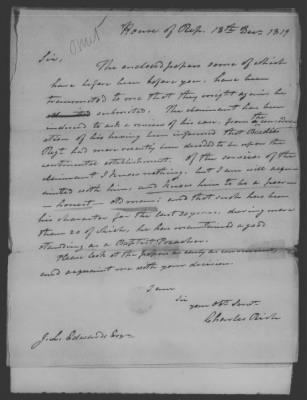 omit
House of Rep. 18th Dec. 1819
Sir,
The enclosed papers some of which
have before been before you, have been
transmitted to me that they might again be
submitted. The claimant has been
induced to ask a review of his case, from the consider
ation of his having been informed that
Regt. had more recently been decided to be upon the
continental establishment. Of the services of the
claimant I know nothing, but I am well acqu
ainted with him, and know him to be a poor
— honest — old man: and that such has been
his character for the last 30 years, during more
than 20 of which, he has maintained a good
standing as a Baptist Preacher.
Please look at the papers as early as convenient,
and acquaint me with your decision.
I am
Sir
your Obt. Servt.
Charles Rich
J. L. Edwards Esqr.